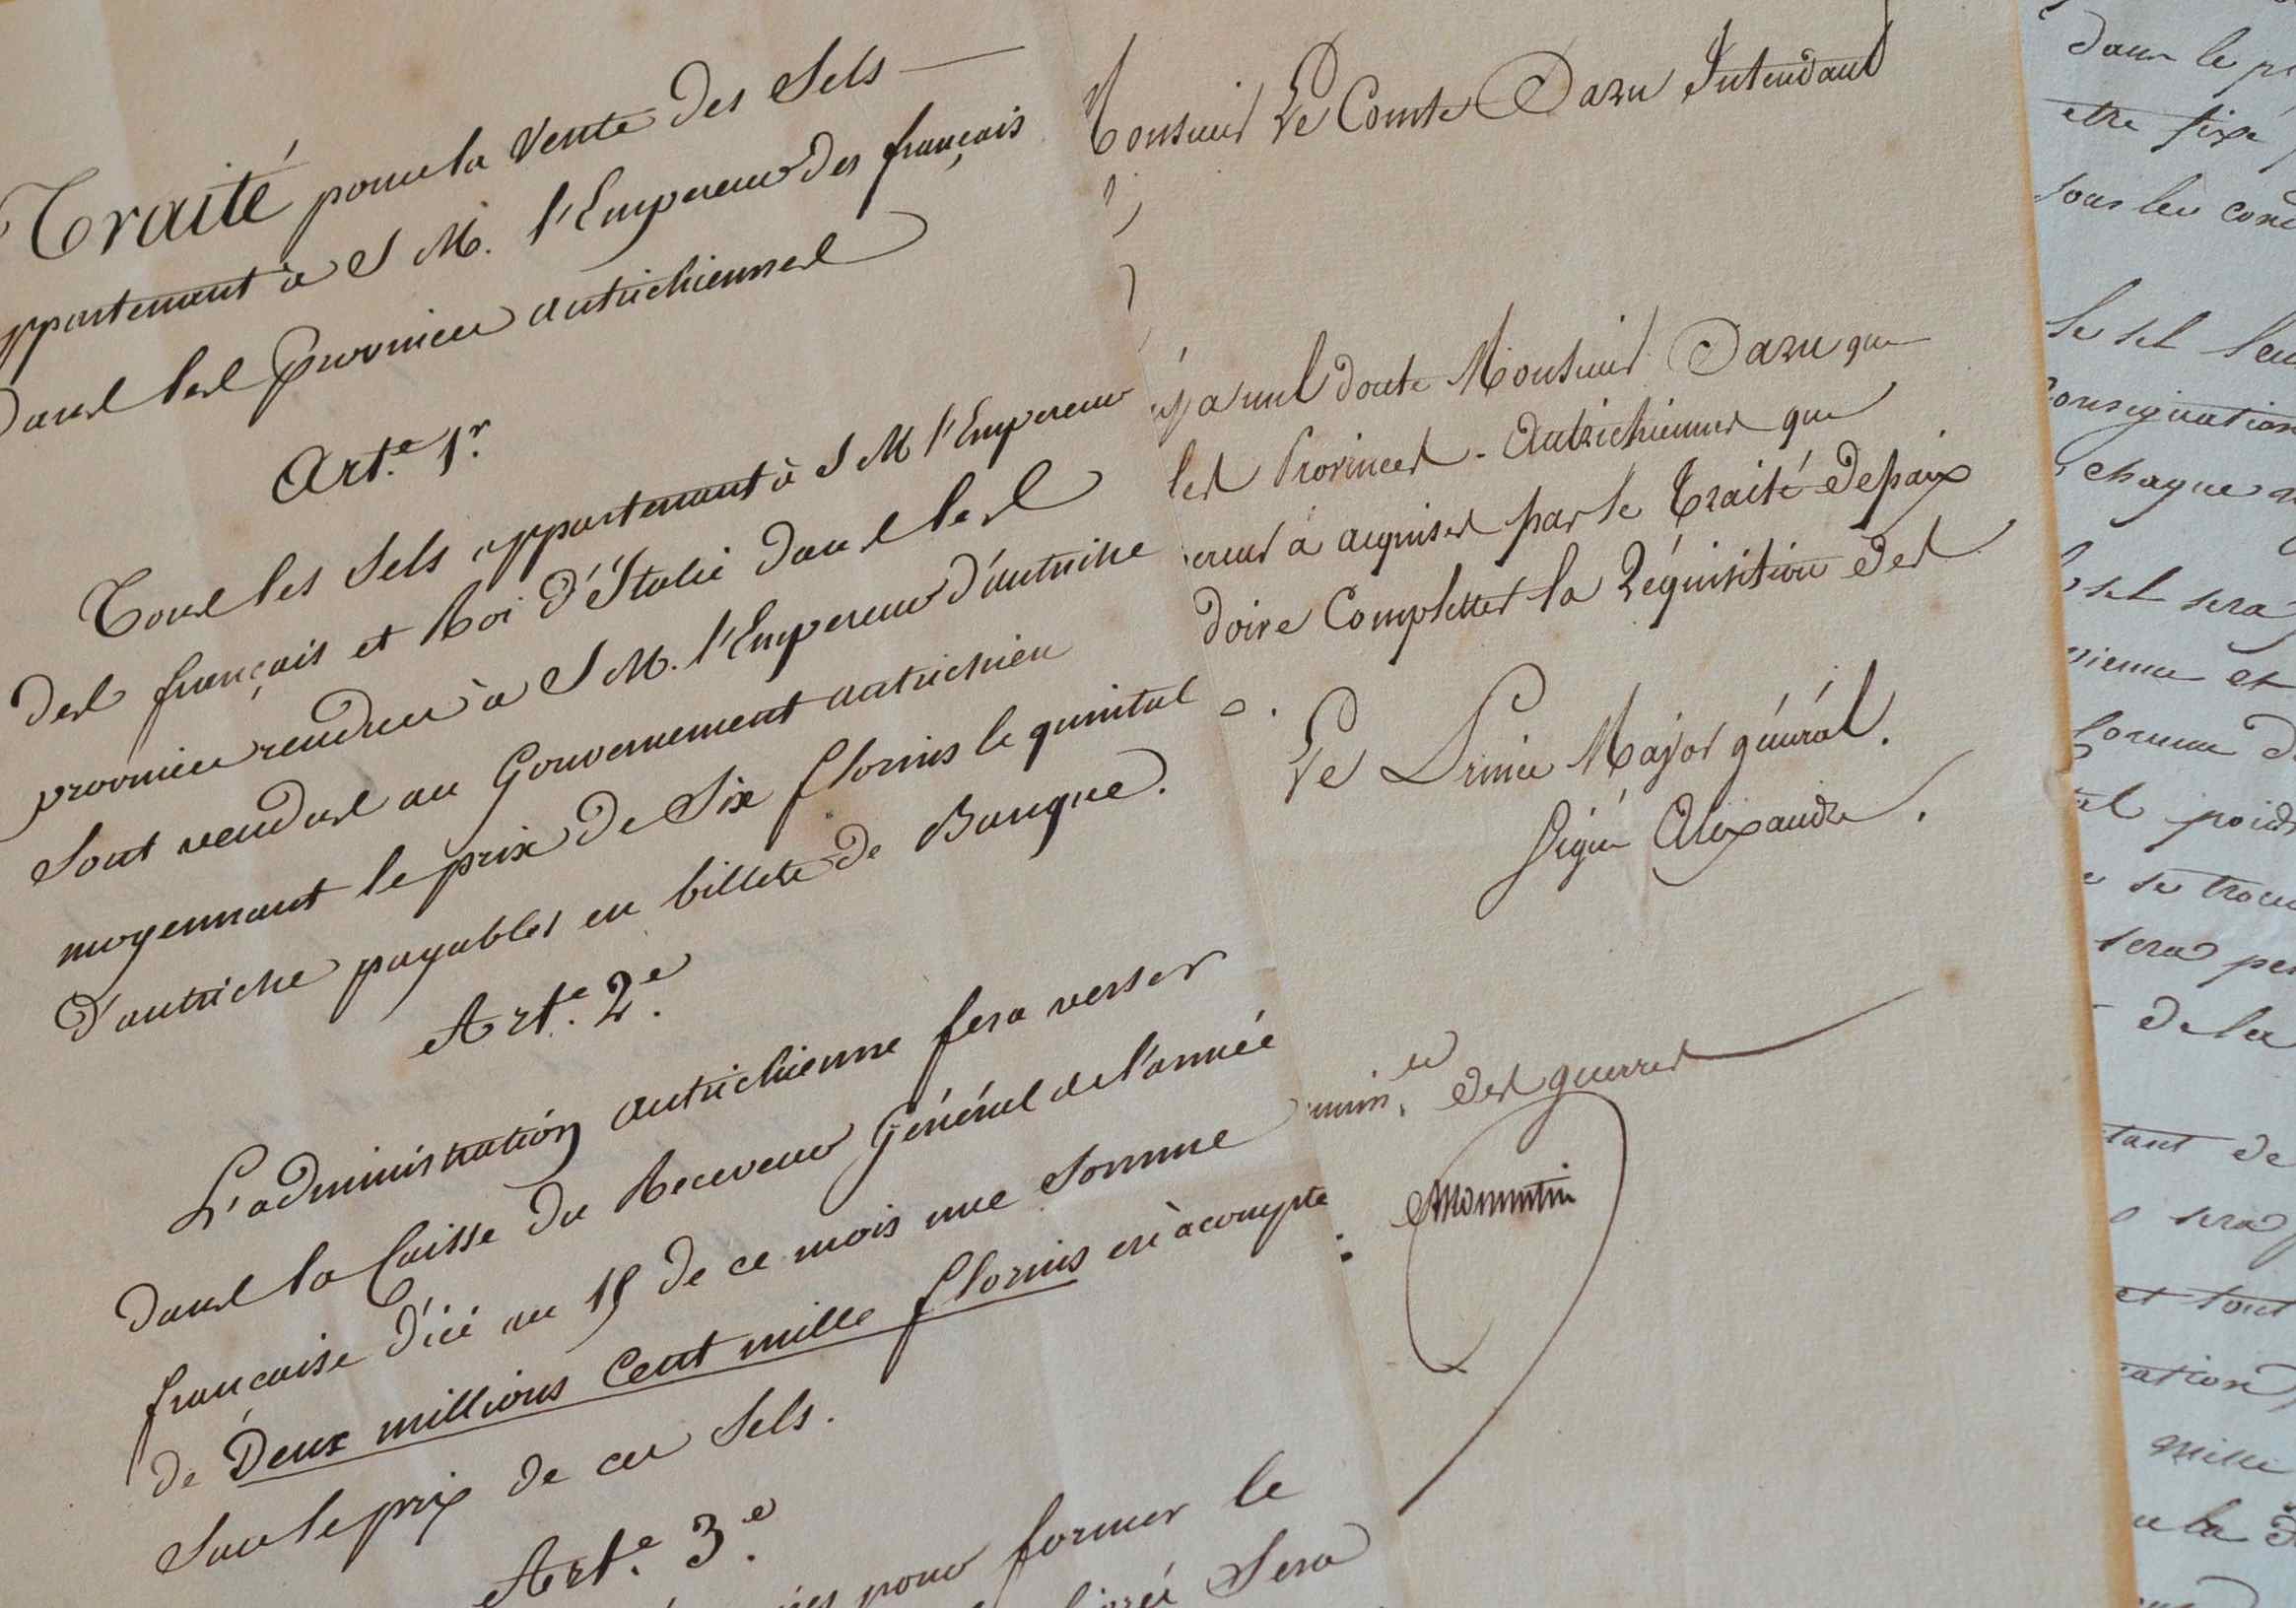 Traité pour la Vente des Sels
appartenant à S M. l'Empereur des français
Dans les provinces autrichiennes
Art.e 1.r
Tous les Sels appartenant à S M l'Empereur
des français et Roi d'Italie dans les
provinces rendues à S M. l'Empereur d'autriche
Sont vendus au Gouvernement autrichien
moyennant le prix de Six florins le quintal
d'autriche payables en billets de Banque.
Art.e 2.e
L'administration autrichienne fera verser
dans la Caisse du Receveur Général de l'armée
française d'ici au 15 de ce mois une Somme
de Deux millions Cent mille florins en àcompte
Sur le prix de ces Sels.
Art.e 3.e
pour former le
Sera
Monsieur Le Comte Daru Intendant
a nul doute Monsieur Daru que
les Provinces Autrichiennes que
a acquises par le Traité de paix
doive Completter la Réquisition des
Le Prince Major général.
Signé Alexandre.
des guerres
dans le
etre fixé
sous les
le sel
consignation
chaque
sel sera
et
somme
poids
se
sera
de la
tant de
sera
et tout
mille